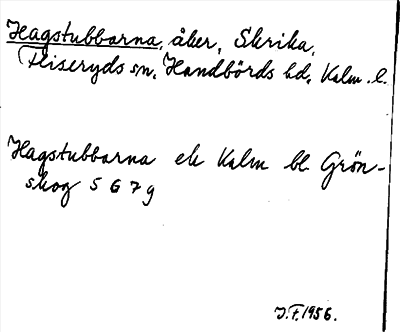 Hagstubbarna, åker, Skrika,
Fliseryds sn, Handbörds hd, Kalm. l.
Hagstubbarna ek Kalm bl. Grön-
skog 5 G 7 g
J.F. 1956.